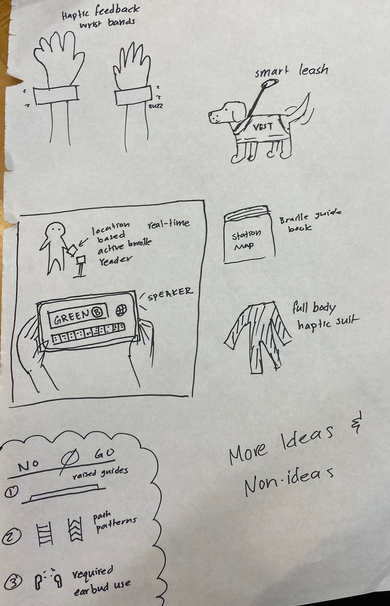 Haptic feedback
wrist bands
BUZZ
smart leash
VEST
location
based
active braille
reader
real-time
SPEAKER
GREEN B
Station
Map
Braille guide
book
full body
haptic suit
NO GO
raised guides
1
2
path
patterns
3
required
earbud use
More Ideas &
Non-ideas